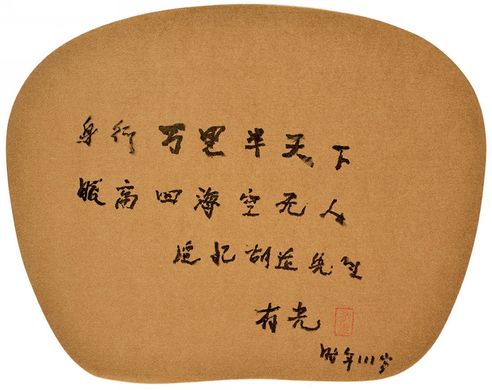 身行万里半天下
眼高四海空无人
追忆胡适先生
有光
时年111岁